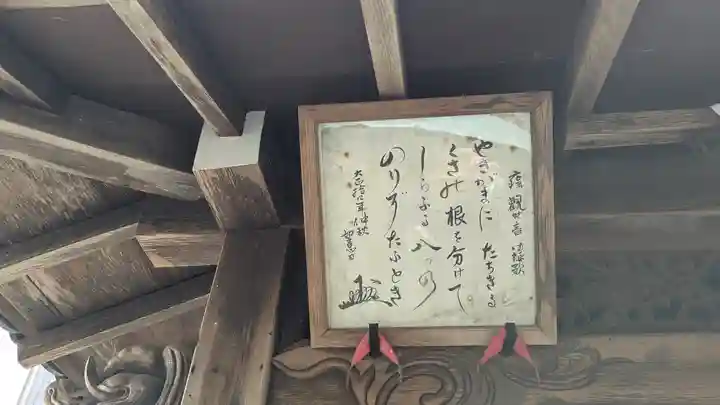 観世音御詠歌
やきがまに たちきる
くさの根を分けて
しらふる八つの
のりぞたふとき
大正拾年仲秋